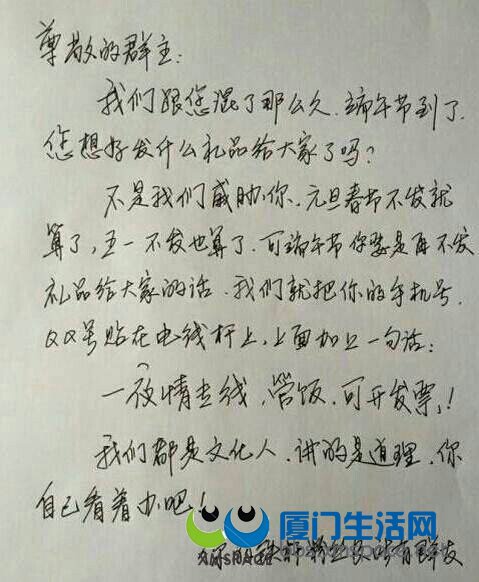 尊敬的群主:
我们跟您混了那么久,端午节到了.
您想好发什么礼品给大家了吗?
不是我们威胁你,元旦春节不发就
算了,五一不发也算了.可端午节你要是再不发
礼品给大家的话,我们就把你的手机号.
QQ号贴在电线杆上,上面加上一句话:
一夜情专线,管饭,可开发票,!
我们都是文化人,讲的是道理,你
自己看着办吧!
厦门生活网
群友